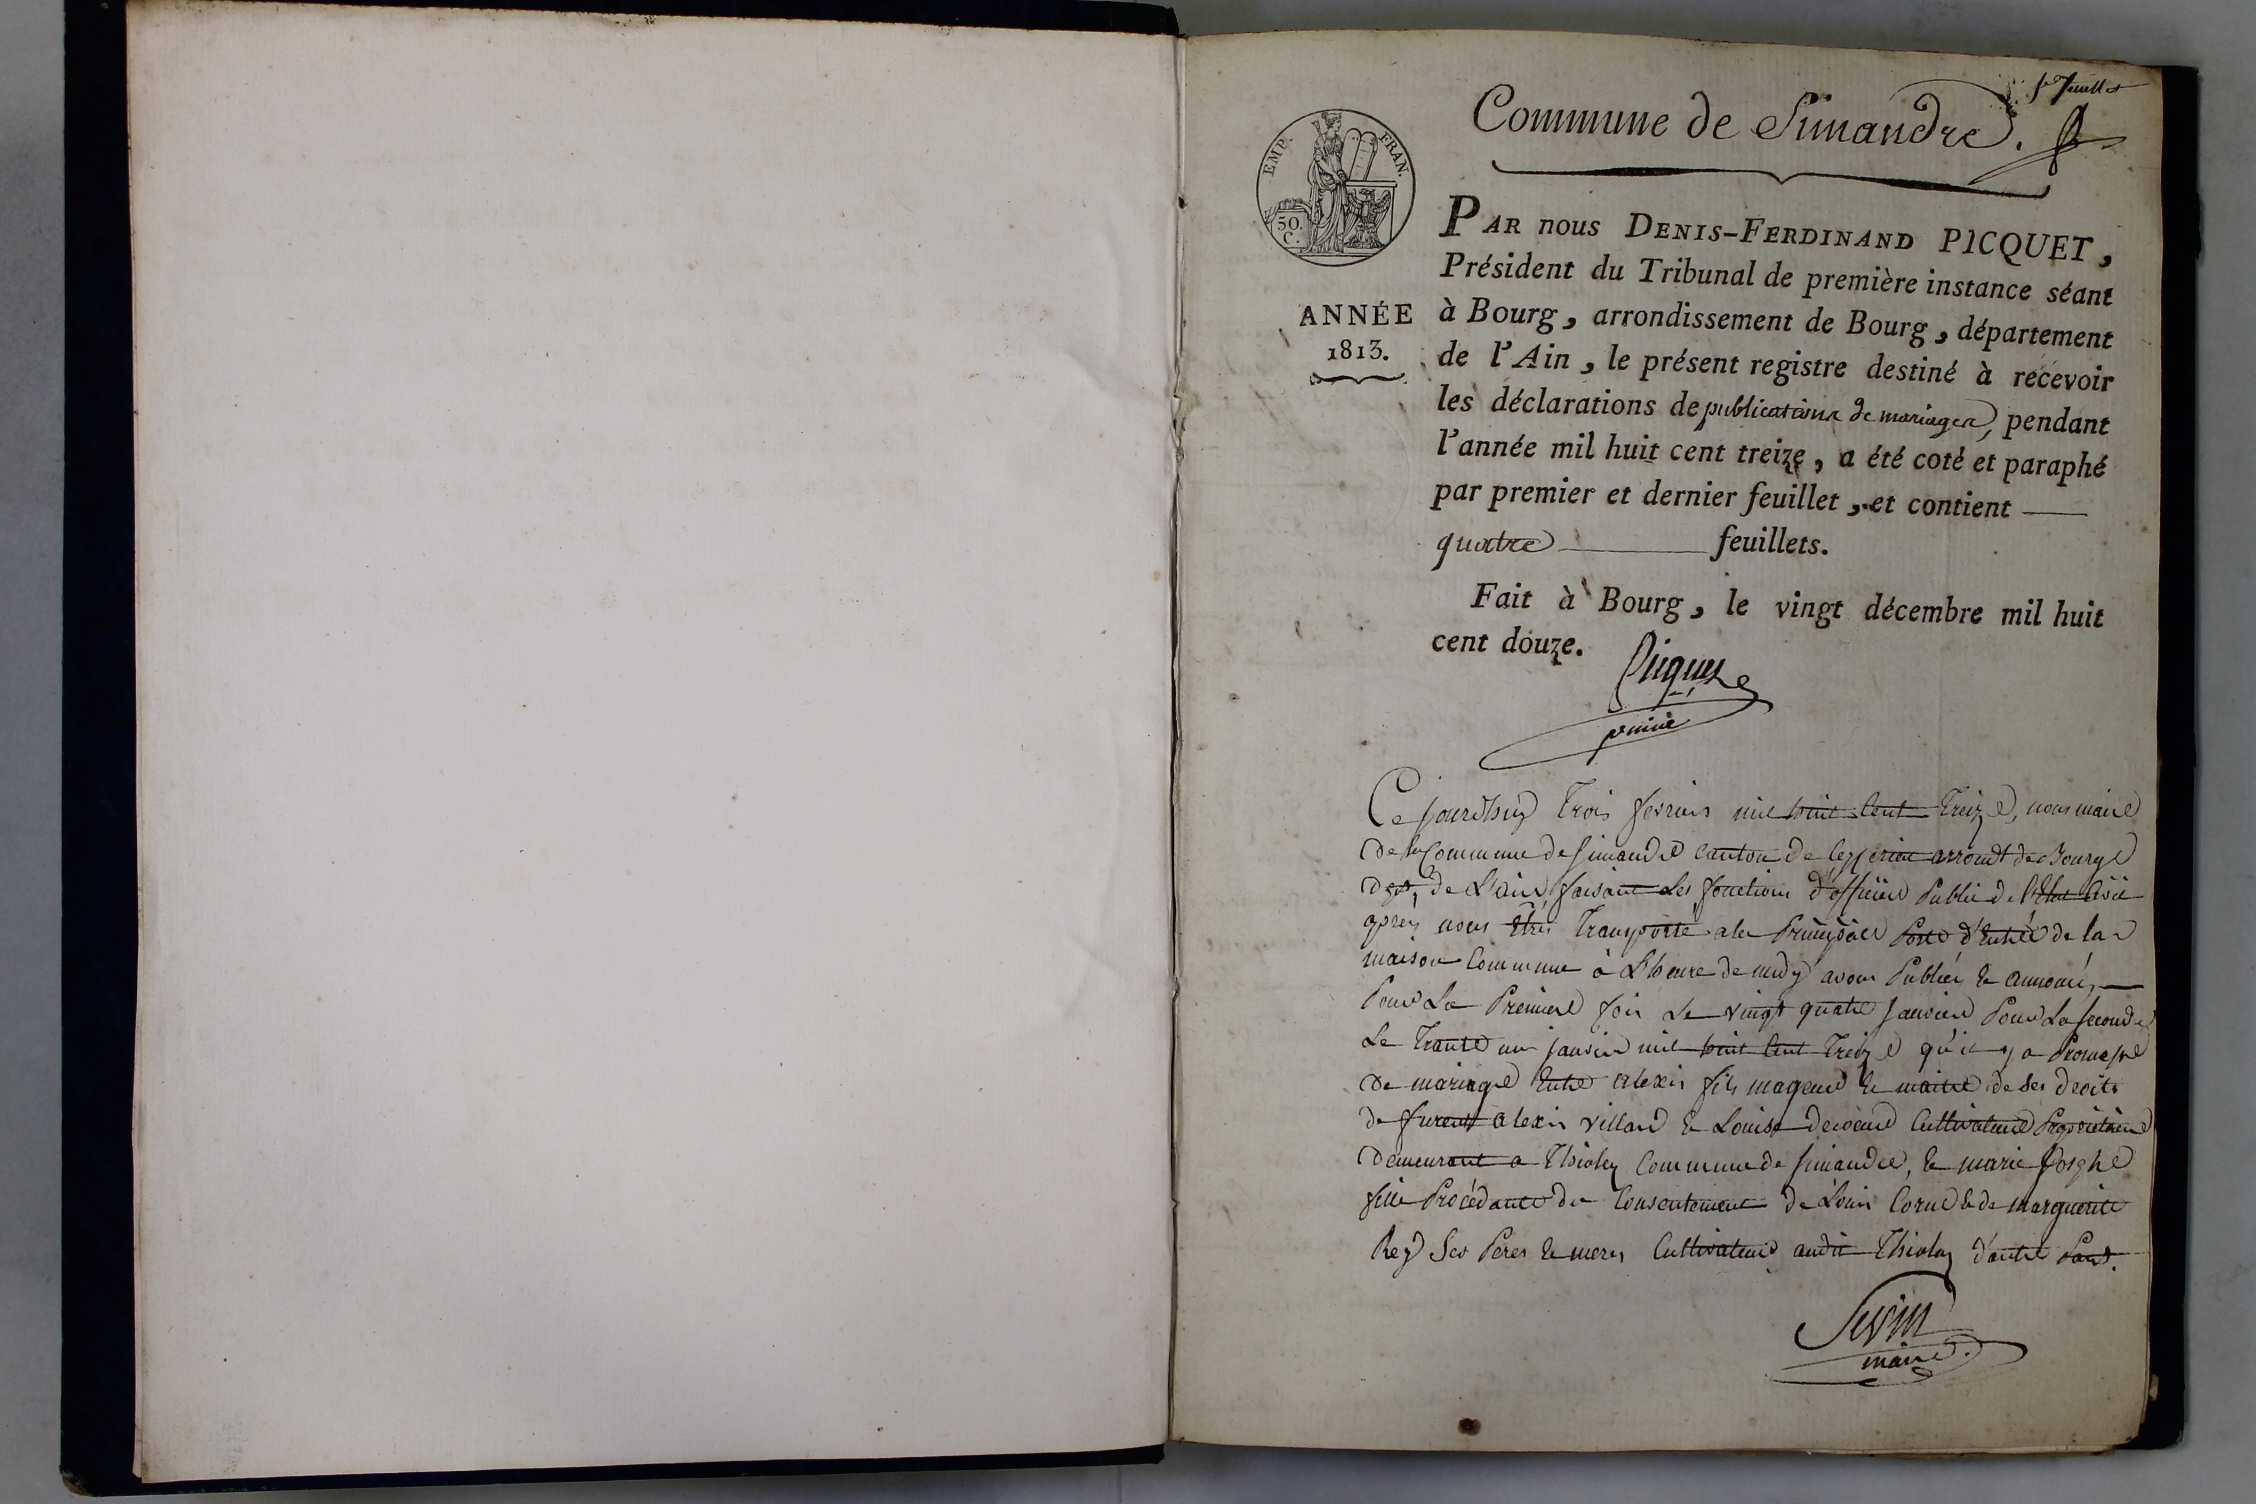 1er feuillet
Commune de Simandre.
EMP. FRAN.
50.
C.
ANNÉE
1813.
PAR nous DENIS-FERDINAND PICQUET,
Président du Tribunal de première instance séant
à Bourg, arrondissement de Bourg, département
de l'Ain, le présent registre destiné à recevoir
les déclarations de publications de mariages, pendant
l'année mil huit cent treize, a été coté et paraphé
par premier et dernier feuillet, et contient
quatre feuillets.
Fait à Bourg, le vingt décembre mil huit
cent douze.
Picquet
Ce jourdhuy Trois fevrier mil huit Cent Treize, nous maire
de la Commune de Simandre Canton de Ceyzeriat arromdt de Bourg
dept, de L'ain, faisant Les fonctions d'officier Public de l'Etat Civil
après nous Etres Transporté a la Principale Porte d'Entrée de la
maison Commune à L'heure de midy avons Publiés & annoncés
Pour La Premiere fois Le vingt quatre Janvier Pour La seconde
Le Trante un janvier mil huit Cent Treize qu'il y a Promesse
de mariage Entre Alexis fils mageur & maitre de ses droits
de furent Alexis Villard & Louise Cultivateur Propriétaire
demeurant a Thioley Commune de Simandre, & marie Josephe
fille Procédante du Consentement de Louis Cornu & de Marguerite
Rey Ses Peres & meres Cultivateurs audit Thioley d'autre Part.
Sevin
maire.